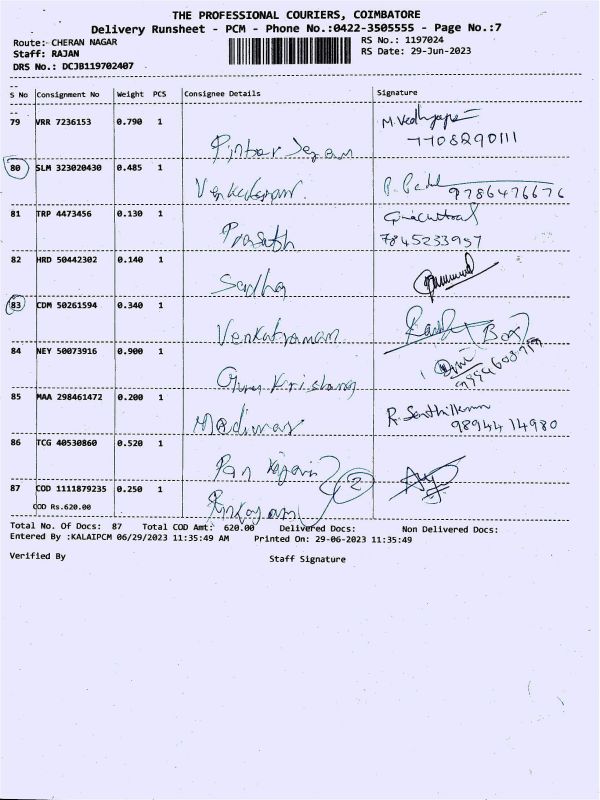 THE PROFESSIONAL COURIERS, COIMBATORE
Delivery Runsheet - PCM - Phone No.:0422-3505555 - Page No.:7
Route: CHERAN NAGAR
RS No.: 1197024
Staff: RAJAN
RS Date: 29-Jun-2023
DRS No.: DCJB119702407
S No Consignment No Weight PCS Consignee Details Signature
79 VRR 7236153 0.790 1
7708290111
80 SLM 323020430 0.485 1
9786476676
81 TRP 4473456 0.130 1 Prasath
7845233957
82 HRD 50442302 0.140 1 Sadha
83 CDM 50261594 0.340 1 Venkatraman (Box)
84 NEY 50073916 0.900 1 Guru Krishana
85 MAA 298461472 0.200 1 R. Senthilkumar
98944 14980
86 TCG 40530860 0.520 1
2
87 COD 1111879235 0.250 1
COD Rs.620.00
Total No. Of Docs: 87 Total COD Amt: 620.00 Delivered Docs: Non Delivered Docs:
Entered By :KALAIPCM 06/29/2023 11:35:49 AM Printed On: 29-06-2023 11:35:49
Verified By Staff Signature